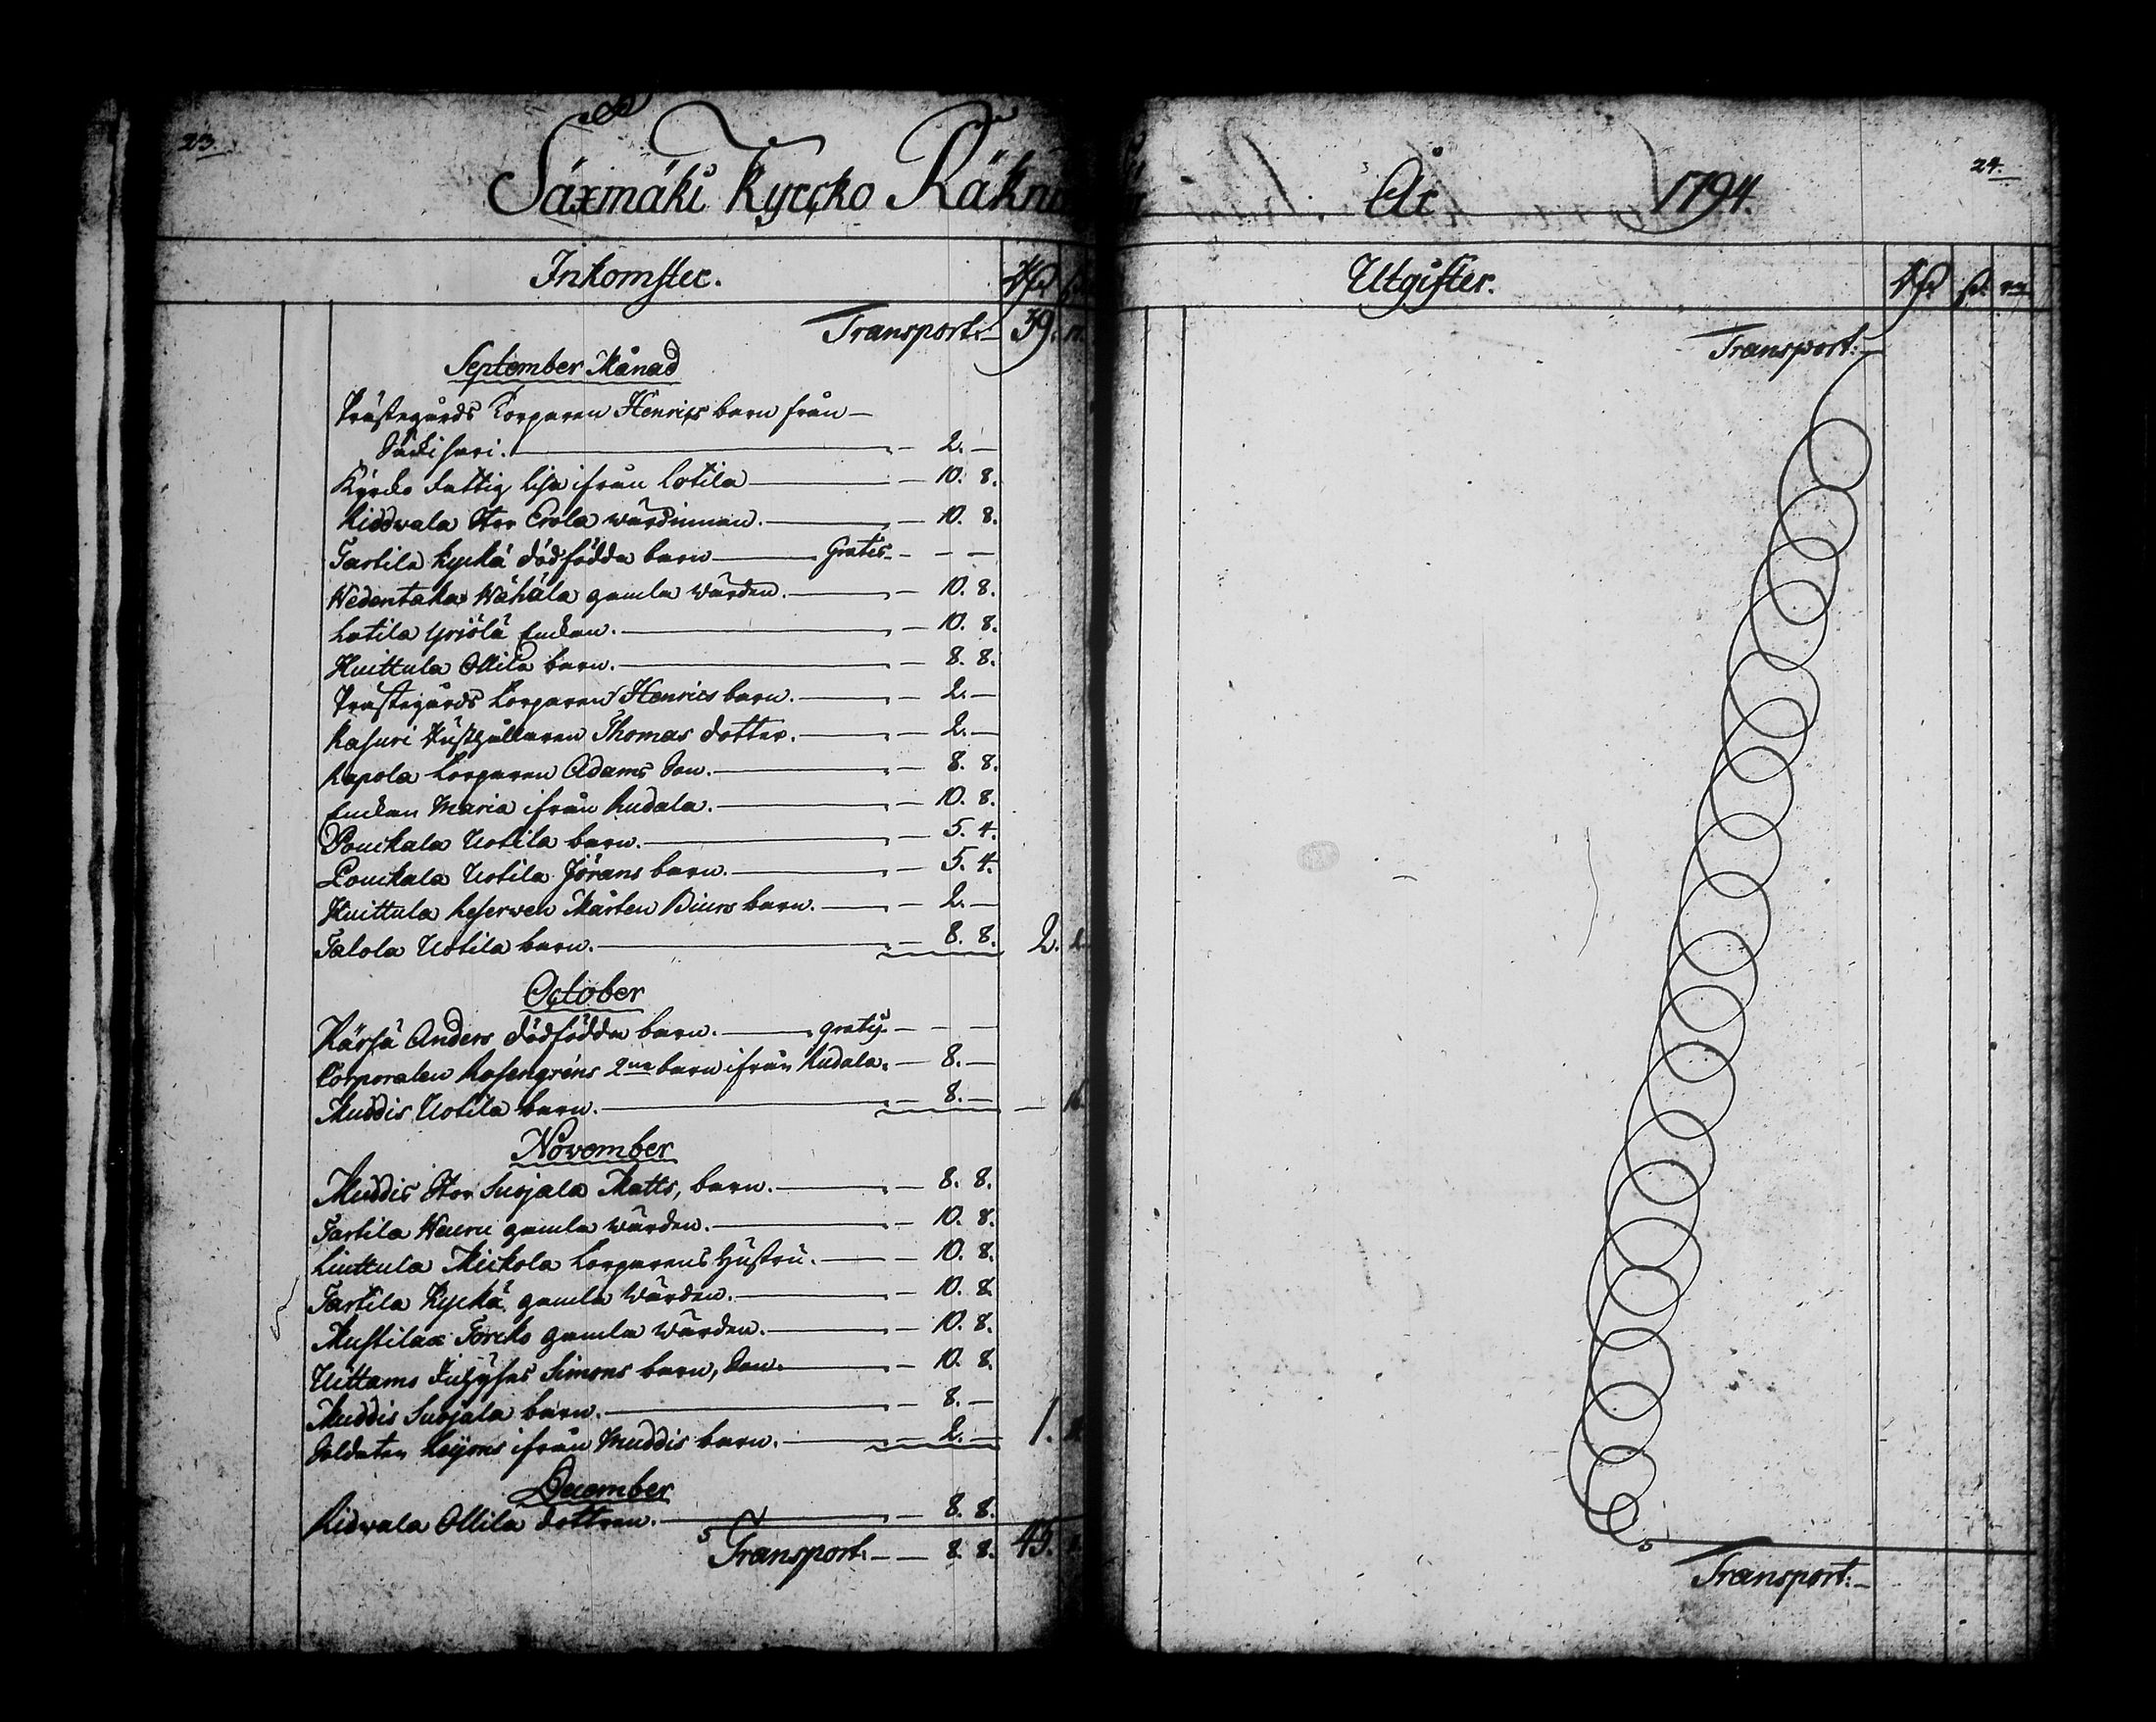 23.
Säxmäki Kyrcko Räkni
Inkomster.
Transport:— 39.
September Månad
Prästegårds Torparen Henrics barn från—
Säckisari. — 2. —
Kyrcko fattig Lisa ifrån Lotila — 10. 8.
Riddvala Stor Erola wärdinnan. — 10. 8.
Tartila Kyckä dödfödda barn — Gratis — — —
Wedentaka Wähälä gamla Wärden. — 10. 8.
Lotila Yrjölä Enckan. — 10. 8.
Huittula Ollila barn. — 8. 8.
Prästegårds Torparen Henrics barn. — 2. —
Kasuri Thomas dotter. — 2. —
Rapola Torparen Adams Son. — 8. 8.
Enckan Maria ifrån Rudala. — 10. 8.
Jouckala Uotila barn. — 5. 4.
Jouckala Uotila Jörans barn. — 5. 4.
Huittula Reserven Mårten Biurs barn. — 2. —
Talola Uotila barn. — 8. 8. 2.
October
Kärsä Anders dödfödda barn. — gratis — — —
Corporalen Rosengréns 2ne barn ifrån Rudala. — 8. —
Muddis Uotila barn. — 8. — —
November
Muddis Stor Suojala Matts, barn. — 8. 8.
Tartila Wauru gamla Wärden. — 10. 8.
Liuttula Mickola Torparens Hustru. — 10. 8.
Tartila Kyckä gamla Wärden. — 10. 8.
Mustila Torcko gamla Wärden. — 10. 8.
Uittamo Simons barn, Son. — 10. 8.
Muddis Suojala barn. — 8. —
Soldaten Leijons ifrån Muddis barn. — 2. — 1.
December
Ridvala Ollila dottren. — 8. 8.
Transport. — — 8. 8. 43.
24.
År 1794.
Utgifter.
Transport:—
Transport:—